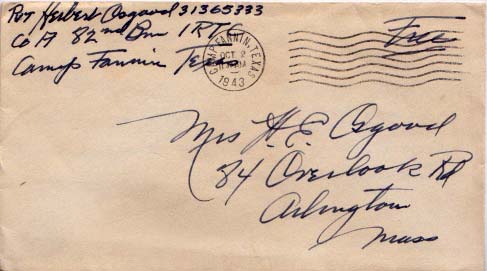 Pvt Herbert Osgood 31365333
Co A 82nd Bn IRTC
Camp Fannin Texas
CAMP FANNIN, TEXAS
OCT 2
1943
Free
Mrs H. E. Osgood
84 Overlook Rd
Arlington
Mass